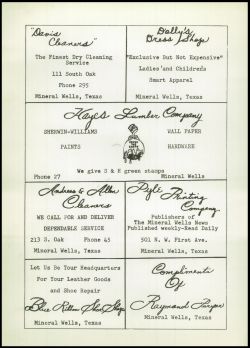 "Davis
Cleaners"
The Finest Dry Cleaning
Service
111 South Oak
Phone 295
Mineral Wells, Texas
Dolly's
Dress Shop
"Exclusive But Not Expensive"
Ladies and Childrens
Smart Apparel
Mineral Wells, Texas
Hayes Lumber Company
SHERWIN-WILLIAMS
PAINTS
WALL PAPER
HARDWARE
We give S & H green stamps
Phone 27
Mineral Wells
Andrews & Allen
Cleaners
WE CALL FOR AND DELIVER
DEPENDABLE SERVICE
213 S. Oak Phone 43
Mineral Wells, Texas
Printing
Company
Publishers of
The Mineral Wells News
Published weekly-Read Daily
501 N. W. First Ave.
Mineral Wells, Texas
Let Us Be Your Headquarters
For Your Leather Goods
and Shoe Repair
Blue Ribbon Shoe Shop
Mineral Wells, Texas
Compliments
Of
Raymond
Mineral Wells, Texas